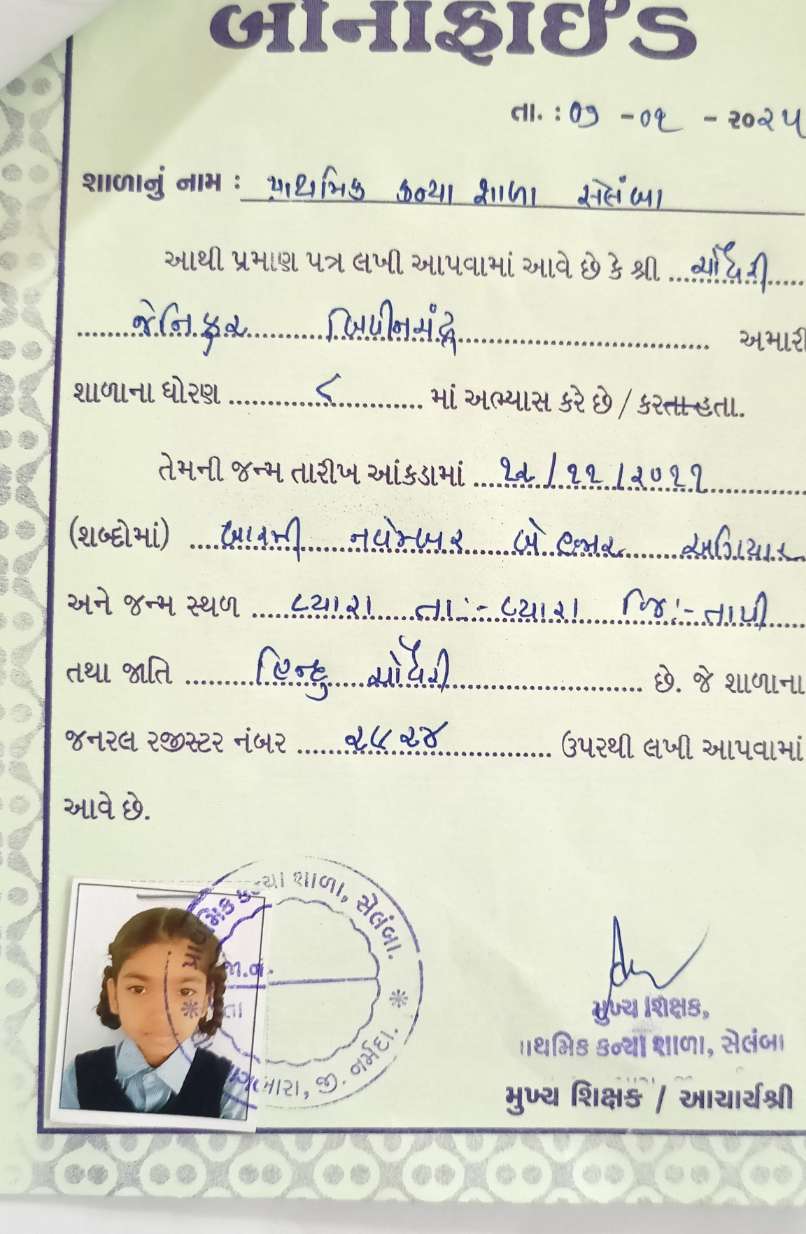 બોનાફાઈડ
તા. : ૦૭ - ૦૧ - ૨૦૨૫
શાળાનું નામ : પ્રાથમિક કન્યા શાળા સેલંબા
આથી પ્રમાણ પત્ર લખી આપવામાં આવે છે કે શ્રી ચૌધરી
જેનિફર બિપીનચંદ્ર અમારી
શાળાના ધોરણ ૮ માં અભ્યાસ કરે છે / કરતા હતા.
તેમની જન્મ તારીખ આંકડામાં ૧૨/૧૧/૨૦૧૧
(શબ્દોમાં) બારમી નવેમ્બર બે હજાર અગિયાર
અને જન્મ સ્થળ વ્યારા તા:- વ્યારા જિ:- તાપી
તથા જાતિ હિન્દુ ચૌધરી છે. જે શાળાના
જનરલ રજીસ્ટર નંબર ૨૫૨૪ ઉપરથી લખી આપવામાં
આવે છે.
કન્યા શાળા, સેલંબા.
જા.નં.
જી. નર્મદા.
મુખ્ય શિક્ષક,
પ્રાથમિક કન્યા શાળા, સેલંબા
મુખ્ય શિક્ષક / આચાર્યશ્રી